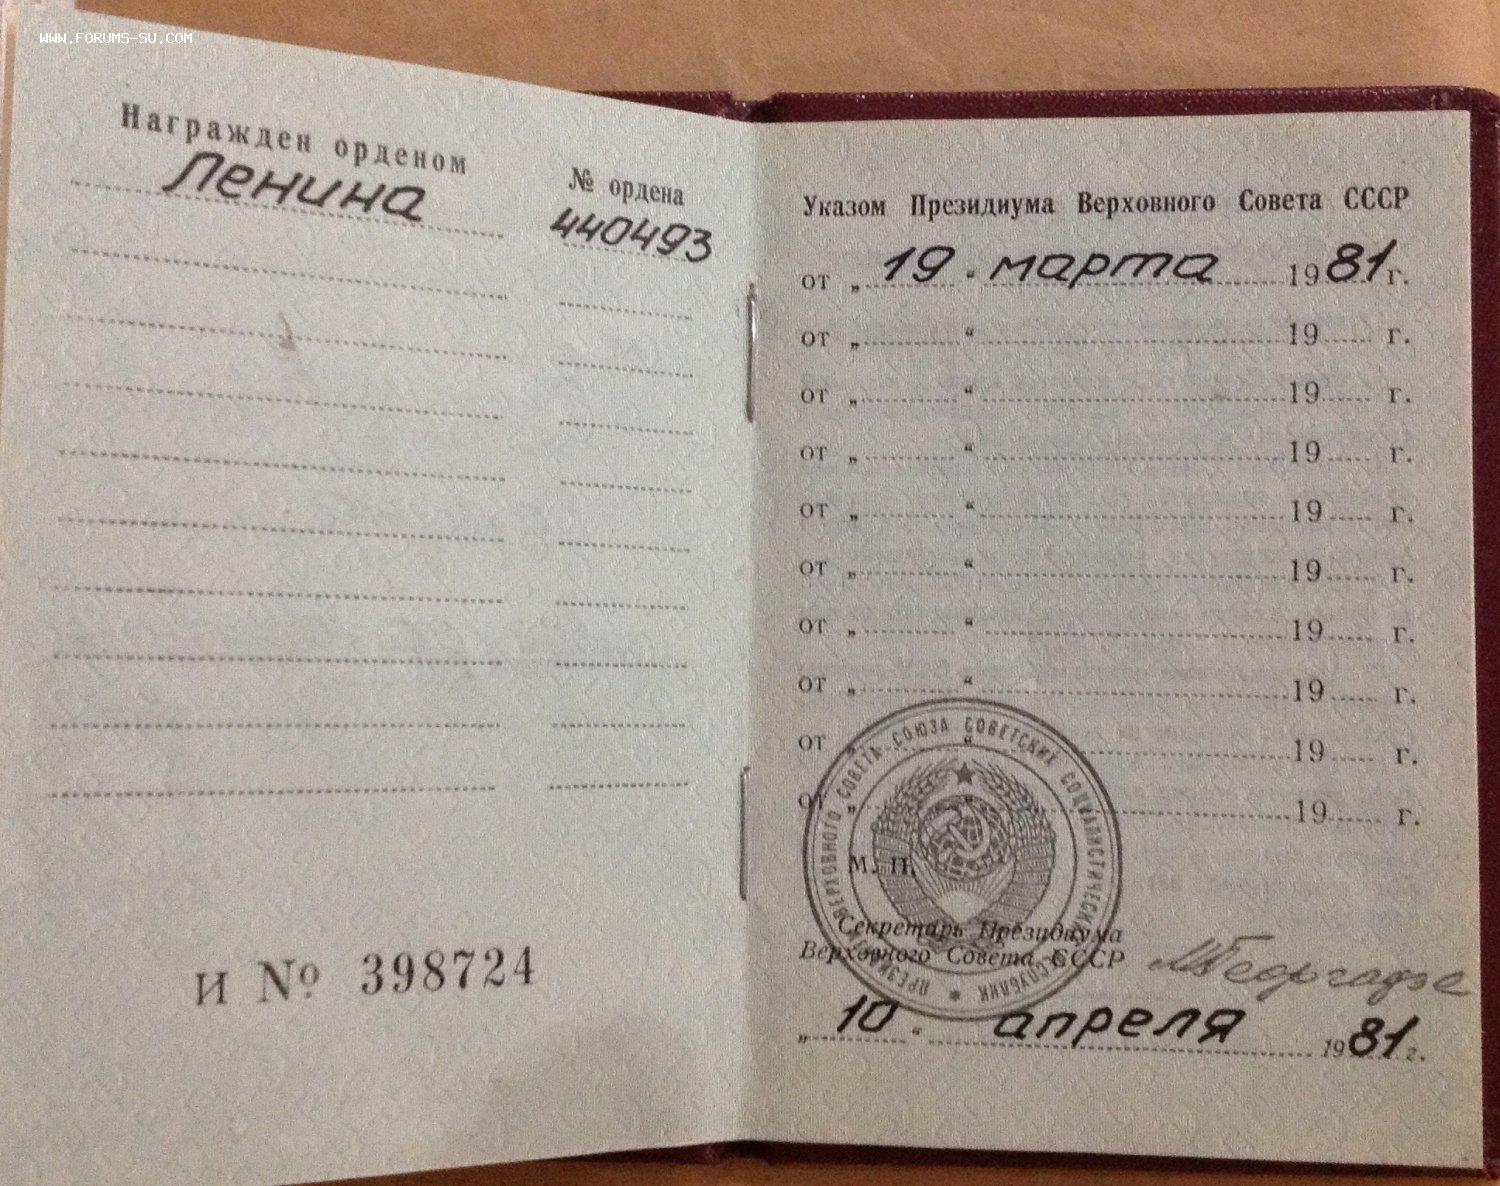 WWW.FORUMS-SU.COM
Награжден орденом
№ ордена
Ленина
440493
И № 398724
Указом Президиума Верховного Совета СССР
от „19“ марта 1981 г.
от „ “ 19 г.
от „ “ 19 г.
от „ “ 19 г.
от „ “ 19 г.
от „ “ 19 г.
от „ “ 19 г.
от „ “ 19 г.
от „ “ 19 г.
от „ “ 19 г.
ПРЕЗИДИУМ ВЕРХОВНОГО СОВЕТА СОЮЗА СОВЕТСКИХ СОЦИАЛИСТИЧЕСКИХ РЕСПУБЛИК
М. П.
Секретарь Президиума
Верховного Совета СССР
МГеоргадзе
„10“ апреля 1981 г.